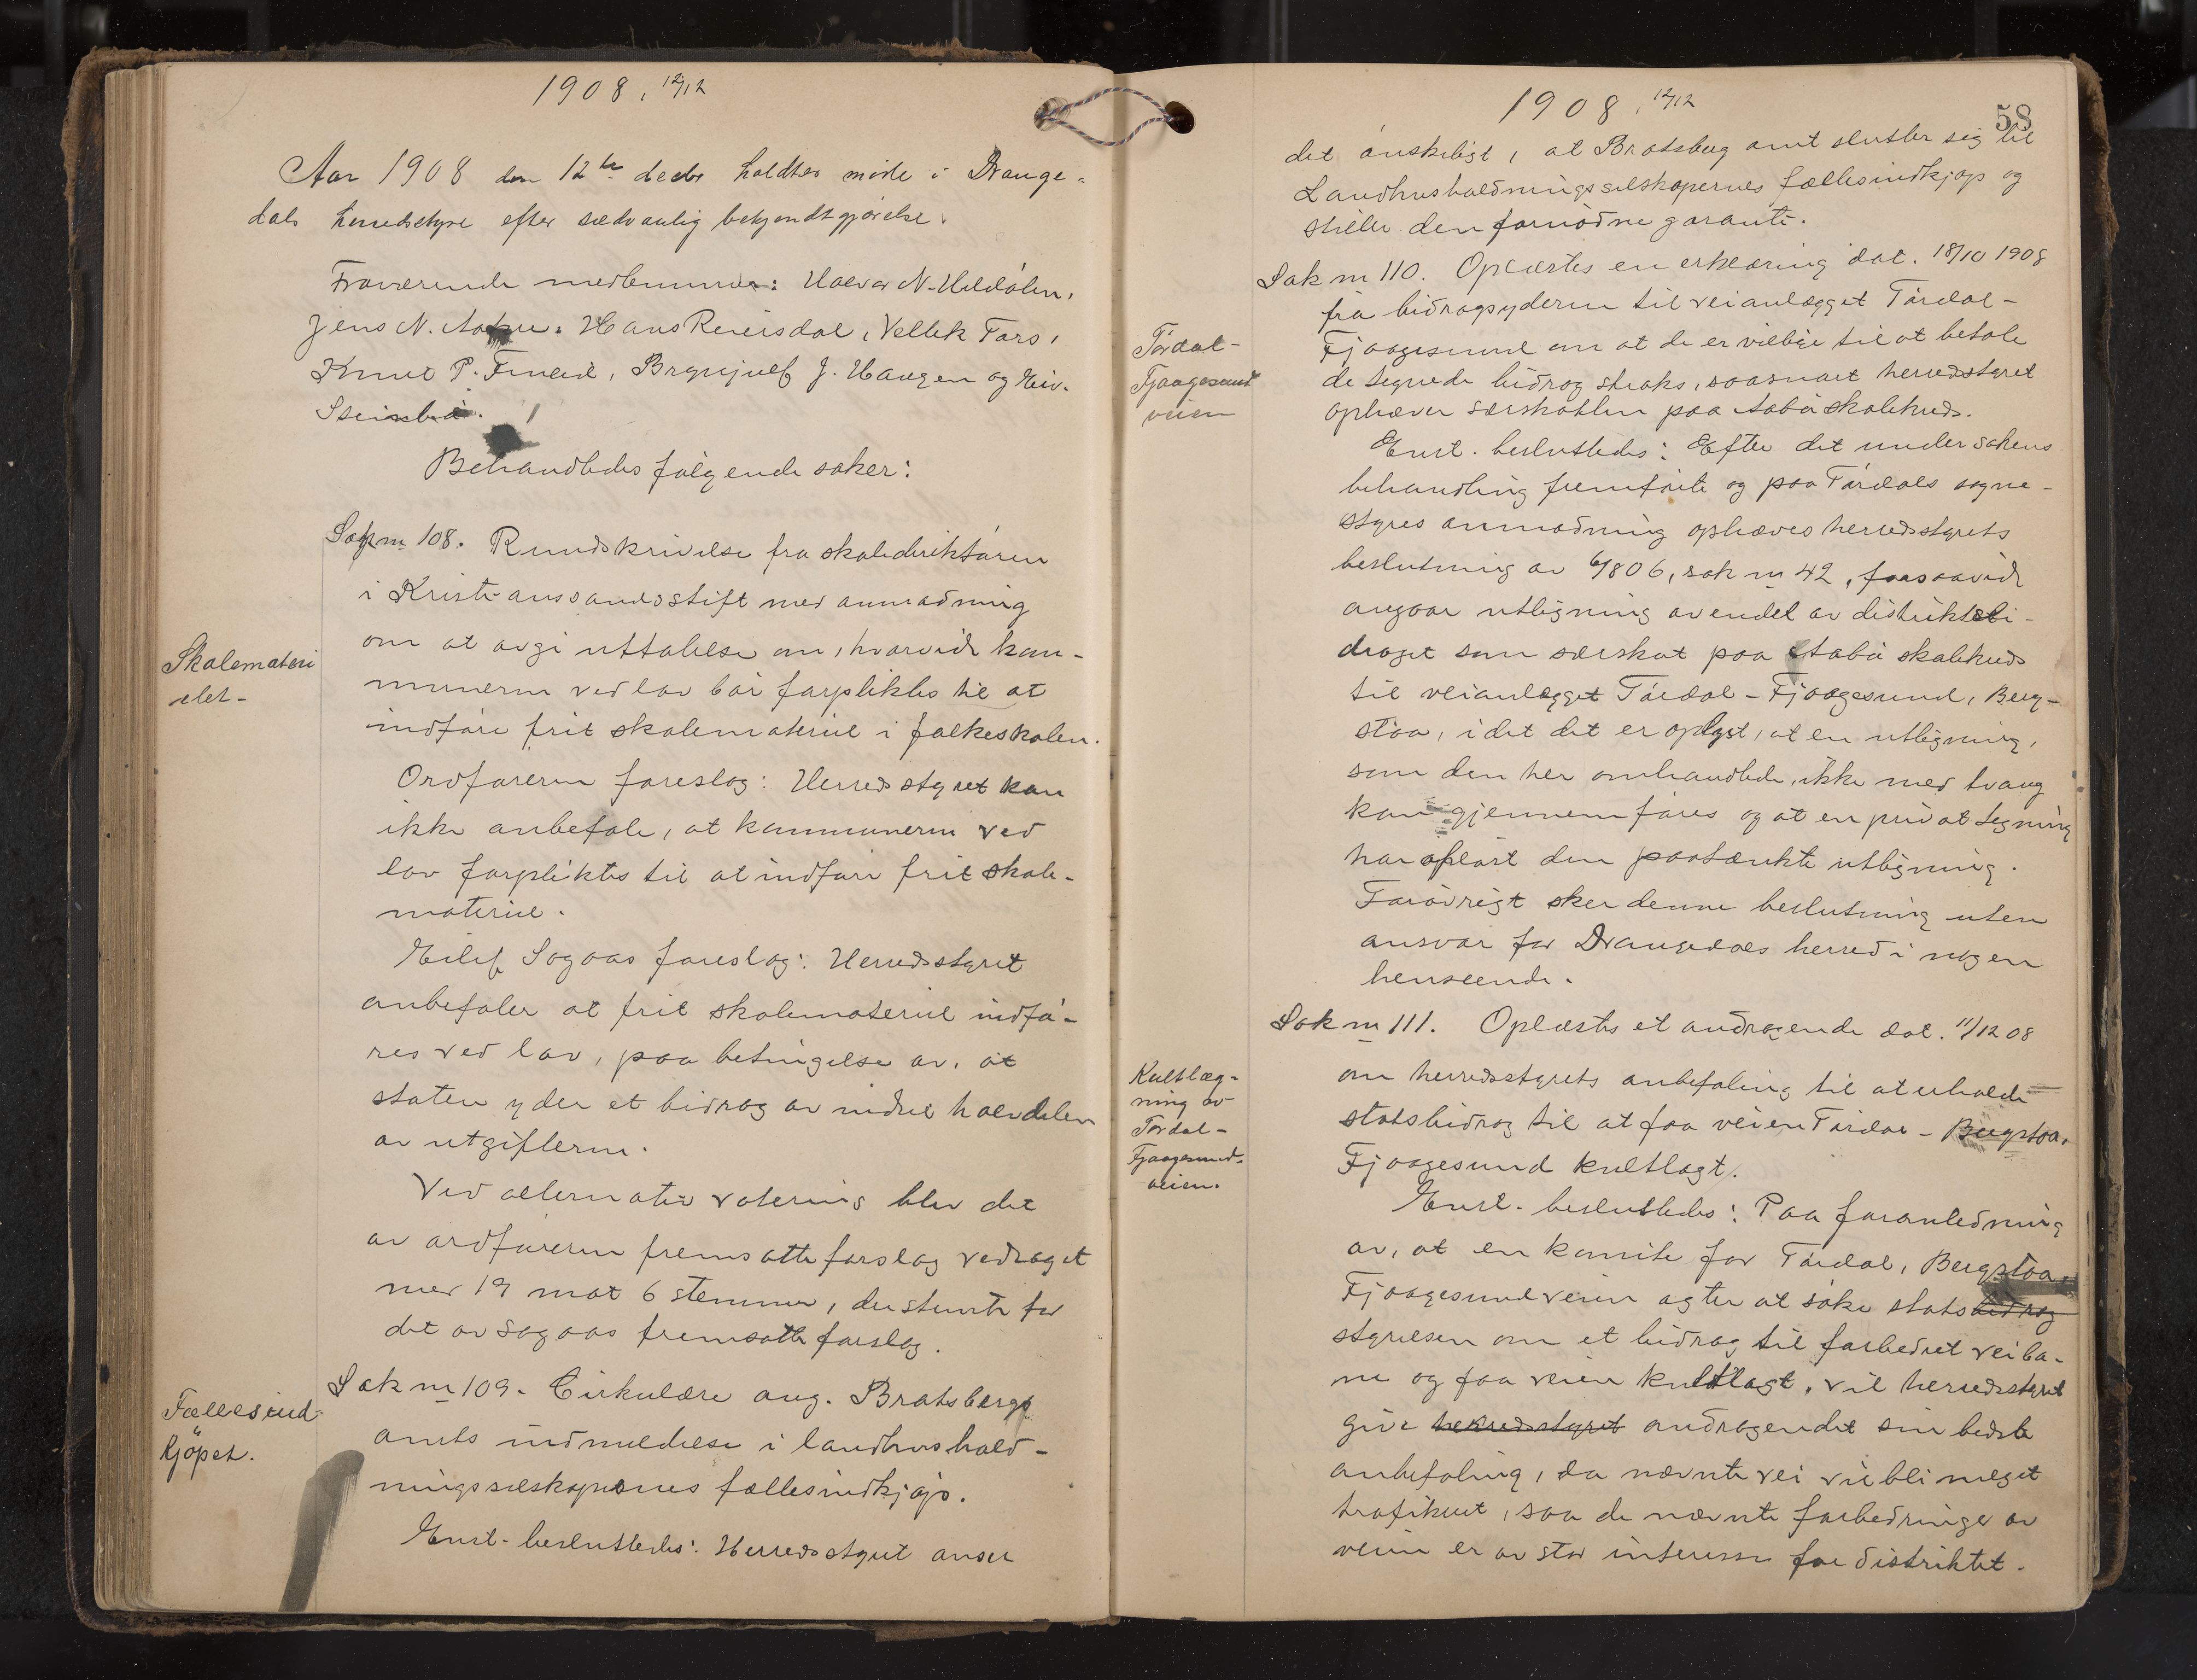 1908, 12/12
Aar 1908 den 12te decbr holdtes møde i Drange-
dals herredstyre efter sædvanlig bekjendtgjørelse.
Fraværende medlemmer: Halvor N. Heldølen,
Jens N. Hans Reiersdal, Vellek Tors,
Knut P. Brynjulf J. Haugen og
Behandledes følgende saker:
Sak nr 108. Rundskrivelse fra skoledirektøren
i Kristianssands stift med anmodning
om at avgi uttalelse om, hvorvidt kom-
munerne ved lov bør forpliktes til at
indføre frit skolemateriel i folkeskolen.
Skolemateri
elet-
Ordføreren foreslog: Herredsstyret kan
ikke anbefale, at kommunerne ved
lov forpliktes til at indføre frit skole-
materiel.
Eilef Sogaas foreslog: Herredsstyret
anbefaler at frit skolemateriel indfø-
res ved lov, paa betingelse av, at
staten yder et bidrag av indtil halvdelen
av utgifterne.
Ved alternativ votering blev det
av ordføreren fremsatte forslag vedtaget
med 19 mot 6 stemmer, der stemte for
det av Sogaas fremsatte forslag.
Sak nr 109. Cirkulære ang. Bratsbergs
amts indmeldelse i landhushold-
ningsselskapernes fællesindkjøp.
Fællesind-
kjöpet.
Enst. besluttedes: Herredsstyret anser
1908, 12/12
58
det ønskeligt, at Bratsberg amt slutter sig til
Landhusholdningsselskapernes fællesindkjøp og
stiller den fornødne garanti.
Sak nr 110. Oplæstes en erklæring dat. 18/10 1908
fra bidragsyderne til veianlægget Tørdal-
Fjaagesund om at de er villige til at betale
de tegnede bidrag straks, saasnart herredsstyret
ophæver særskatten paa Aabø skolekreds.
Tördal-
Fjaagesund
veien
Enst. besluttedes: Efter det under sakens
behandling fremførte og paa Tørdals sogne-
styres anmodning ophæves herredsstyrets
beslutning av 6/8 06, sak nr 42, forsaavidt
angaar utligning av endel av distriktsbi-
draget som særskat paa Aabø skolekreds
til veianlægget Tørdal-Fjaagesund, Berg-
stoa, idet det er oplyst, at en utligning,
som den her omhandlede, ikke med tvang
kan gjennemføres og at en privat tegning
har afløst den paatænkte utligning.
Forøvrigt sker denne beslutning uten
ansvar for Drangedals herred i nogen
henseende.
Sak nr 111. Oplæstes et andragende dat. 11/12 08
om herredsstyrets anbefaling til at erholde
statsbidrag til at faa veien Tørdal - Bergstoa,
Fjaagesund kultlagt.
Kultlæg-
ning av
Tördal-
Fjaagesund-
veien.
Enst. besluttedes: Paa foranledning
av, at en komite for Tørdal, Bergstoa,
Fjaagesundveien agter at søke statsbidrag
styrelsen om et bidrag til forbedret veiba-
ne og faa veien kultlagt, vil herredsstyret
give herredsstyret andragendet sin bedste
anbefaling, da nævnte vei vil bli meget
trafikeret, saa de nævnte forbedringer av
veien er av stor interesse for distriktet.